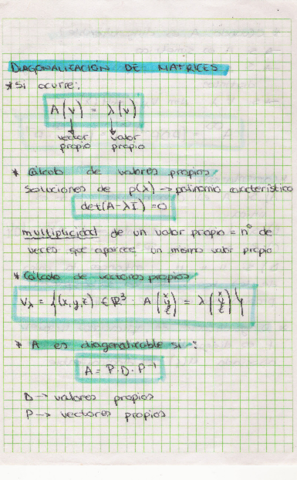 DIAGONALIZACIÓN DE MATRICES
* Si ocurre:
A(v) = λ(v)
vector propio valor propio
* Cálculo de valores propios
Soluciones de p(λ) → polinomio característico
det(A-λI)=0
multiplicidad de un valor propio = nº de
veces que aparece un mismo valor propio
* Cálculo de vectores propios
Vλ = {(x,y,z) ∈ ℝ³ · A(x y z) = λ(x y z)}
* A es diagonalizable si:
A = P·D·P⁻¹
D → valores propios
P → vectores propios